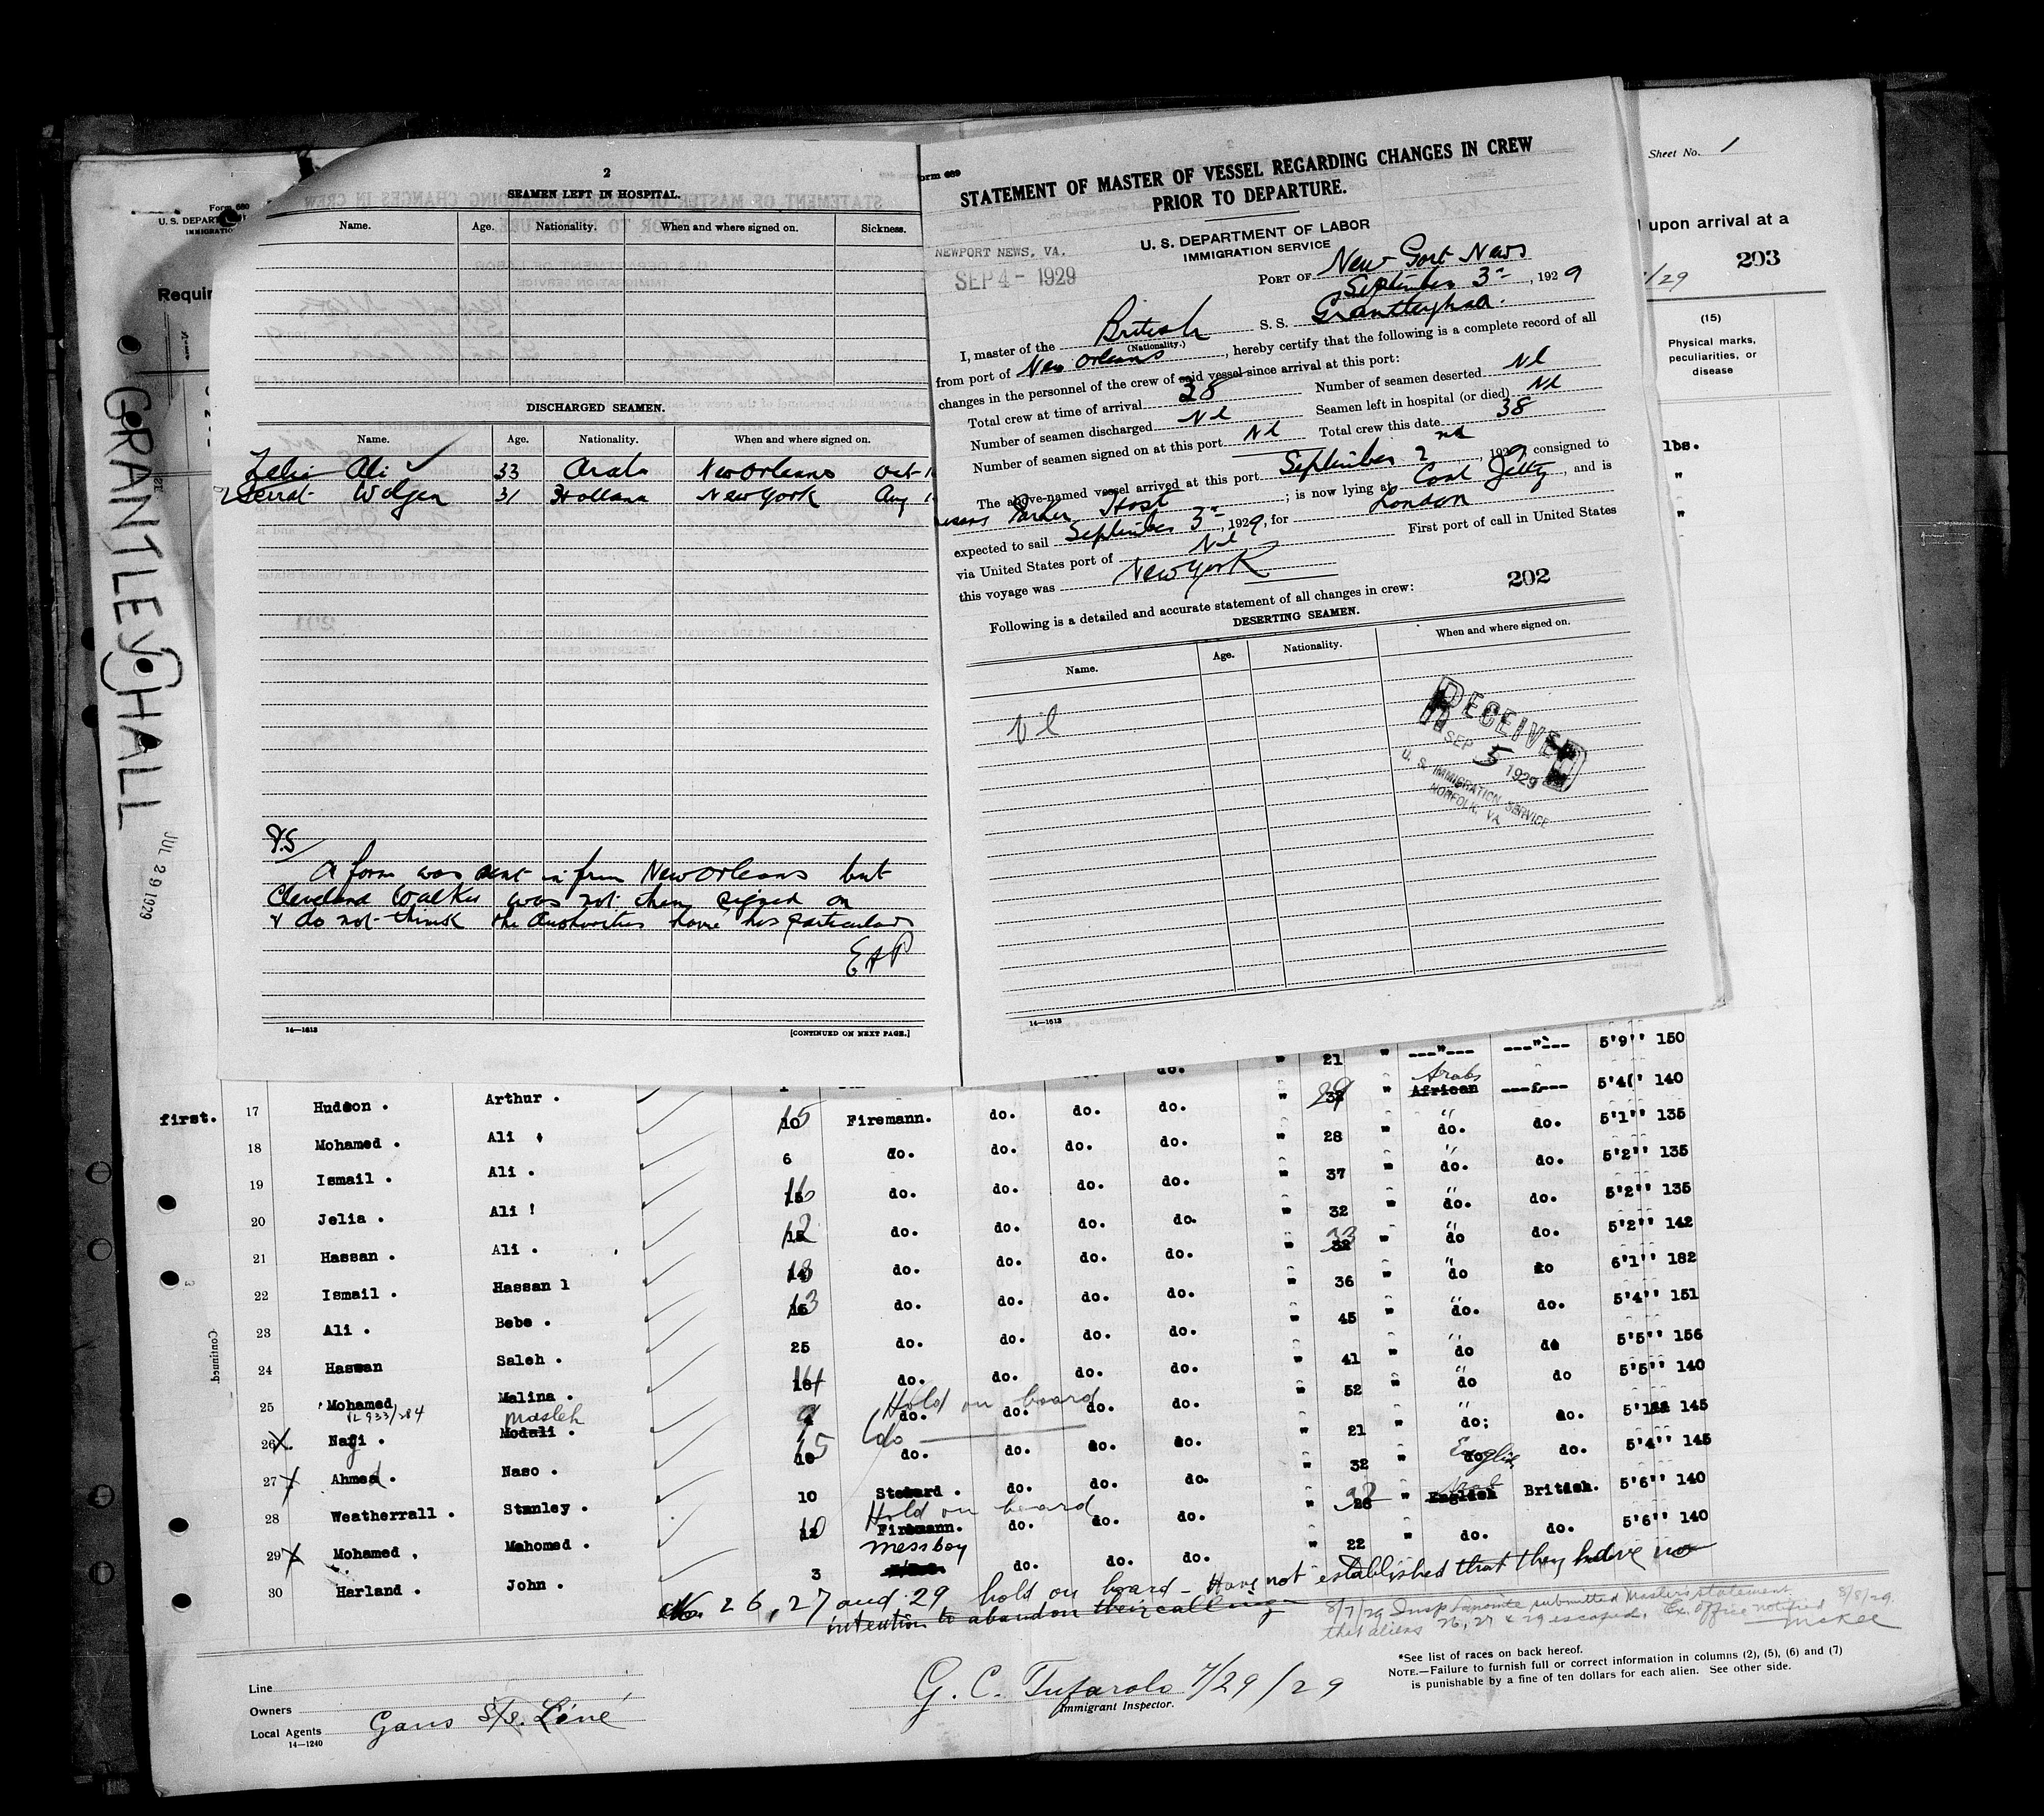 GRANTLEY HALL
JUL 29 1929
Form 680
U. S. DEPART
IMMIGRATIO
Requir
2
SEAMEN LEFT IN HOSPITAL.
Name. Age. Nationality. When and where signed on. Sickness.
DISCHARGED SEAMEN.
Name. Age. Nationality. When and where signed on.
Ali 33 Arab New Orleans Oct
31 Holland New York Aug
P.S
A form was sent in from New Orleans but
Cleveland Walker was not then signed on
& do not think the Authorities have his particulars
EAP
14—1613 [CONTINUED ON NEXT PAGE.]
orm 689
STATEMENT OF MASTER OF VESSEL REGARDING CHANGES IN CREW
PRIOR TO DEPARTURE.
U. S. DEPARTMENT OF LABOR
IMMIGRATION SERVICE
NEWPORT NEWS, VA.
SEP 4 - 1929
PORT OF New Port News
September 3rd, 1929
I, master of the British S. S. Grantleyhall.
(Nationality.)
from port of New Orleans, hereby certify that the following is a complete record of all
changes in the personnel of the crew of said vessel since arrival at this port:
Total crew at time of arrival 38 Number of seamen deserted Nl
Number of seamen discharged Nl Seamen left in hospital (or died) Nl
Number of seamen signed on at this port Nl Total crew this date 38
The above-named vessel arrived at this port September 2nd, 1929, consigned to
Parker Host; is now lying at Coal Jetty, and is
expected to sail September 3rd, 1929, for London
via United States port of Nl First port of call in United States
this voyage was New York
202
Following is a detailed and accurate statement of all changes in crew:
DESERTING SEAMEN.
Name. Age. Nationality. When and where signed on.
Nl
RECEIVED
SEP 5 1929
U. S. IMMIGRATION SERVICE
NORFOLK, VA
14—1613
Sheet No. 1
upon arrival at a
203
/29
(15)
Physical marks,
peculiarities, or
disease
lbs.
"
"
" 21 " ---"--- ---"--- 5'9'' 150
first. 17 Hudson . Arthur .
Arabs
Firemann. do. do. do. " 29 " African 5'4'' 140
18 Mohamed . Ali 6 do. do. do. do. " 28 " do. do. 5'1'' 135
19 Ismail . Ali . do. do. do. do. " 37 " do. do. 5'2'' 135
20 Jelia . Ali ! 12 do. do. do. do. " 32 " do. do. 5'2'' 135
21 Hassan . Ali . do. do. do. do. " 33 " do do. 5'2'' 142
22 Ismail . Hassan 1 13 do. do. do. do. " 36 " do do 6'1'' 182
23 Ali . Bebe . 25 do. do. do. do. " 45 " do. do. 5'4'' 151
24 Hassan Saleh . do. do. do. do. " 41 " do do 5'5'' 156
25 Mohamed Malina . do. do. do. do. " 52 " do do 5'5'' 140
Hold on board
26 X Naji . Modali . Masleh do. do. do. do. " 21 " do; do. 145
27 X Ahmed . Naso . " 32 " do. 5'4'' 145
28 Weatherrall . Stanley . 10 Steward . do. do. do. English British. 5'6'' 140
Hold on board
29 X Mohamed . Mahomed . Firemann. do. do. do. " 22 " do. do. 5'6'' 140
messboy
30 Harland . John . 3 do. do. do.
Nos 26, 27 and 29 hold on board - Have not established that they have no
intention to abandon their calling
8/7/29 Insp Laponite submitted Masters statement
that aliens 26, 27 & 29 escaped. Ex. office notified 8/8/29.
McKee
Continued.
Line
Owners
Local Agents Gans S/S. Line
14—1240
G. C. Tufarolo 7/29/29
Immigrant Inspector.
*See list of races on back hereof.
NOTE.—Failure to furnish full or correct information in columns (2), (5), (6) and (7)
is punishable by a fine of ten dollars for each alien. See other side.